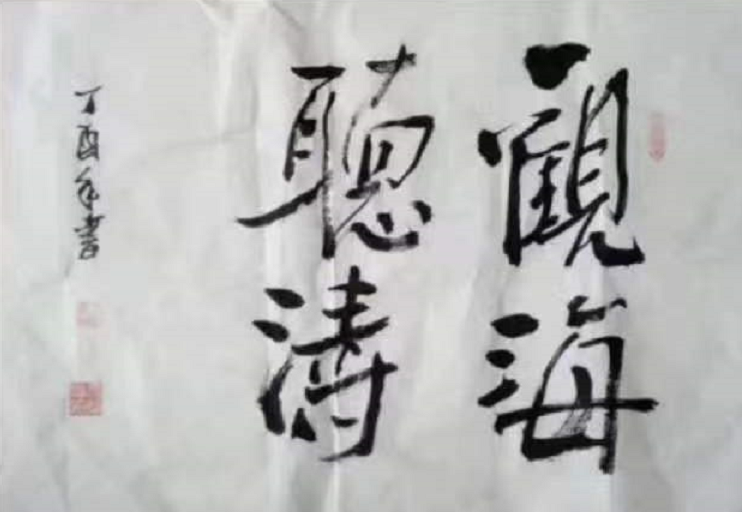 觀海
聽濤
丁酉年書